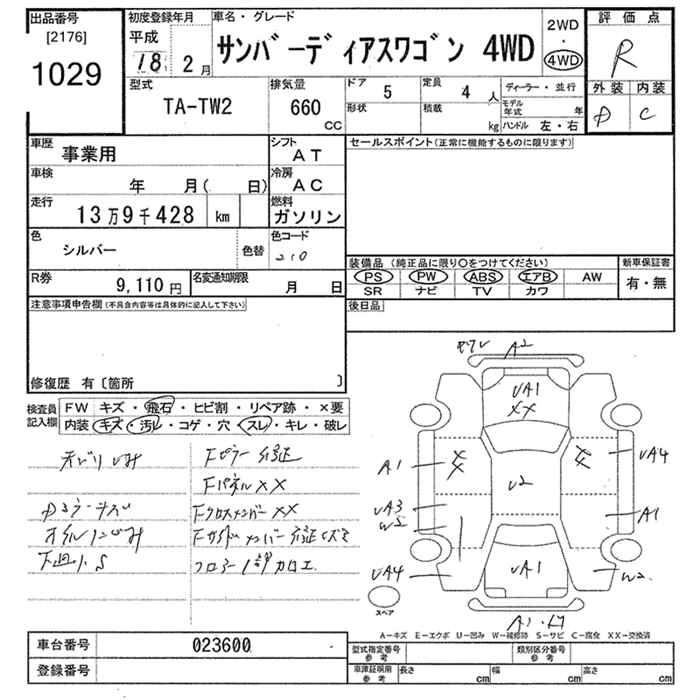 出品番号
[2176]
1029
初度登録年月
平成
18 2月
車名・グレード
サンバーディアスワゴン 4WD
2WD
・
4WD
評価点
R
外装 内装
D C
型式
TA-TW2
排気量
660
CC
ドア 5
形状
定員 4 人
積載 kg
ディーラー・並行
モデル年式 年
ハンドル 左・右
車歴 事業用
シフト AT
車検 年 月( 日)
冷房 AC
走行 13万9千428 km
燃料 ガソリン
色 シルバー
色替
色コード
210
R券 9,110 円
名変通知期限 月 日
セールスポイント(正常に機能するものに限ります)
装備品(純正品に限り○をつけてください)
新車保証書
PS PW ABS エアB AW
有・無
SR ナビ TV カワ
後日品
注意事項申告欄(不具合内容等は具体的に記入して下さい)
修復歴 有〔箇所 〕
検査員記入欄
FW キズ・飛石・ヒビ割・リペア跡・×要
内装 キズ・汚レ・コゲ・穴・スレ・キレ・破レ
Fピラー修正
FパネルXX
FクロスメンバーXX
オイルにじみ
下廻りS
A2
UA1
XX
A1
UA4
U2
UA3
W2
A1
UA4
UA1
W2
スペア
A1
A-キズ E-エクボ U-凹み W-補修跡 S-サビ C-腐食 XX-交換済
車台番号 023600
登録番号
型式指定番号
参考
類別区分番号
参考
車庫証明用
参考
長さ cm
幅 cm
高さ cm